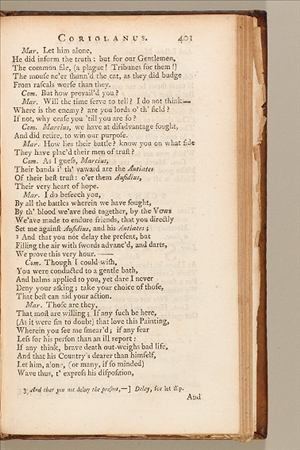 CORIOLANUS. 401
Mar. Let him alone,
He did inform the truth: but for our Gentlemen,
The common file, (a plague! Tribunes for them!)
The mouse ne'er shunn'd the cat, as they did budge
From rascals worse than they.
Com. But how prevail'd you?
Mar. Will the time serve to tell? I do not think—
Where is the enemy? are you lords o' th' field?
If not, why cease you 'till you are so?
Com. Marcius, we have at disadvantage fought,
And did retire, to win our purpose.
Mar. How lies their battle? know you on what side
They have plac'd their men of trust?
Com. As I guess, Marcius,
Their bands i' th' vaward are the Antiates
Of their best trust: o'er them Aufidius,
Their very heart of hope.
Mar. I do beseech you,
By all the battles wherein we have fought,
By th' blood we've shed together, by the Vows
We've made to endure friends, that you directly
Set me against Aufidius, and his Antiates;
3 And that you not delay the present, but
Filling the air with swords advanc'd, and darts,
We prove this very hour. ——
Com. Though I could wish,
You were conducted to a gentle bath,
And balms applied to you, yet dare I never
Deny your asking; take your choice of those,
That best can aid your action.
Mar. Those are they,
That most are willing; If any such be here,
(As it were sin to doubt) that love this Painting,
Wherein you see me smear'd; if any fear
Less for his person than an ill report:
If any think, brave death out-weighs bad life,
And that his Country's dearer than himself,
Let him, alone, (or many, if so minded)
Wave thus, t' express his disposition,
3 And that you not delay the present,—] Delay, for let slip.
And